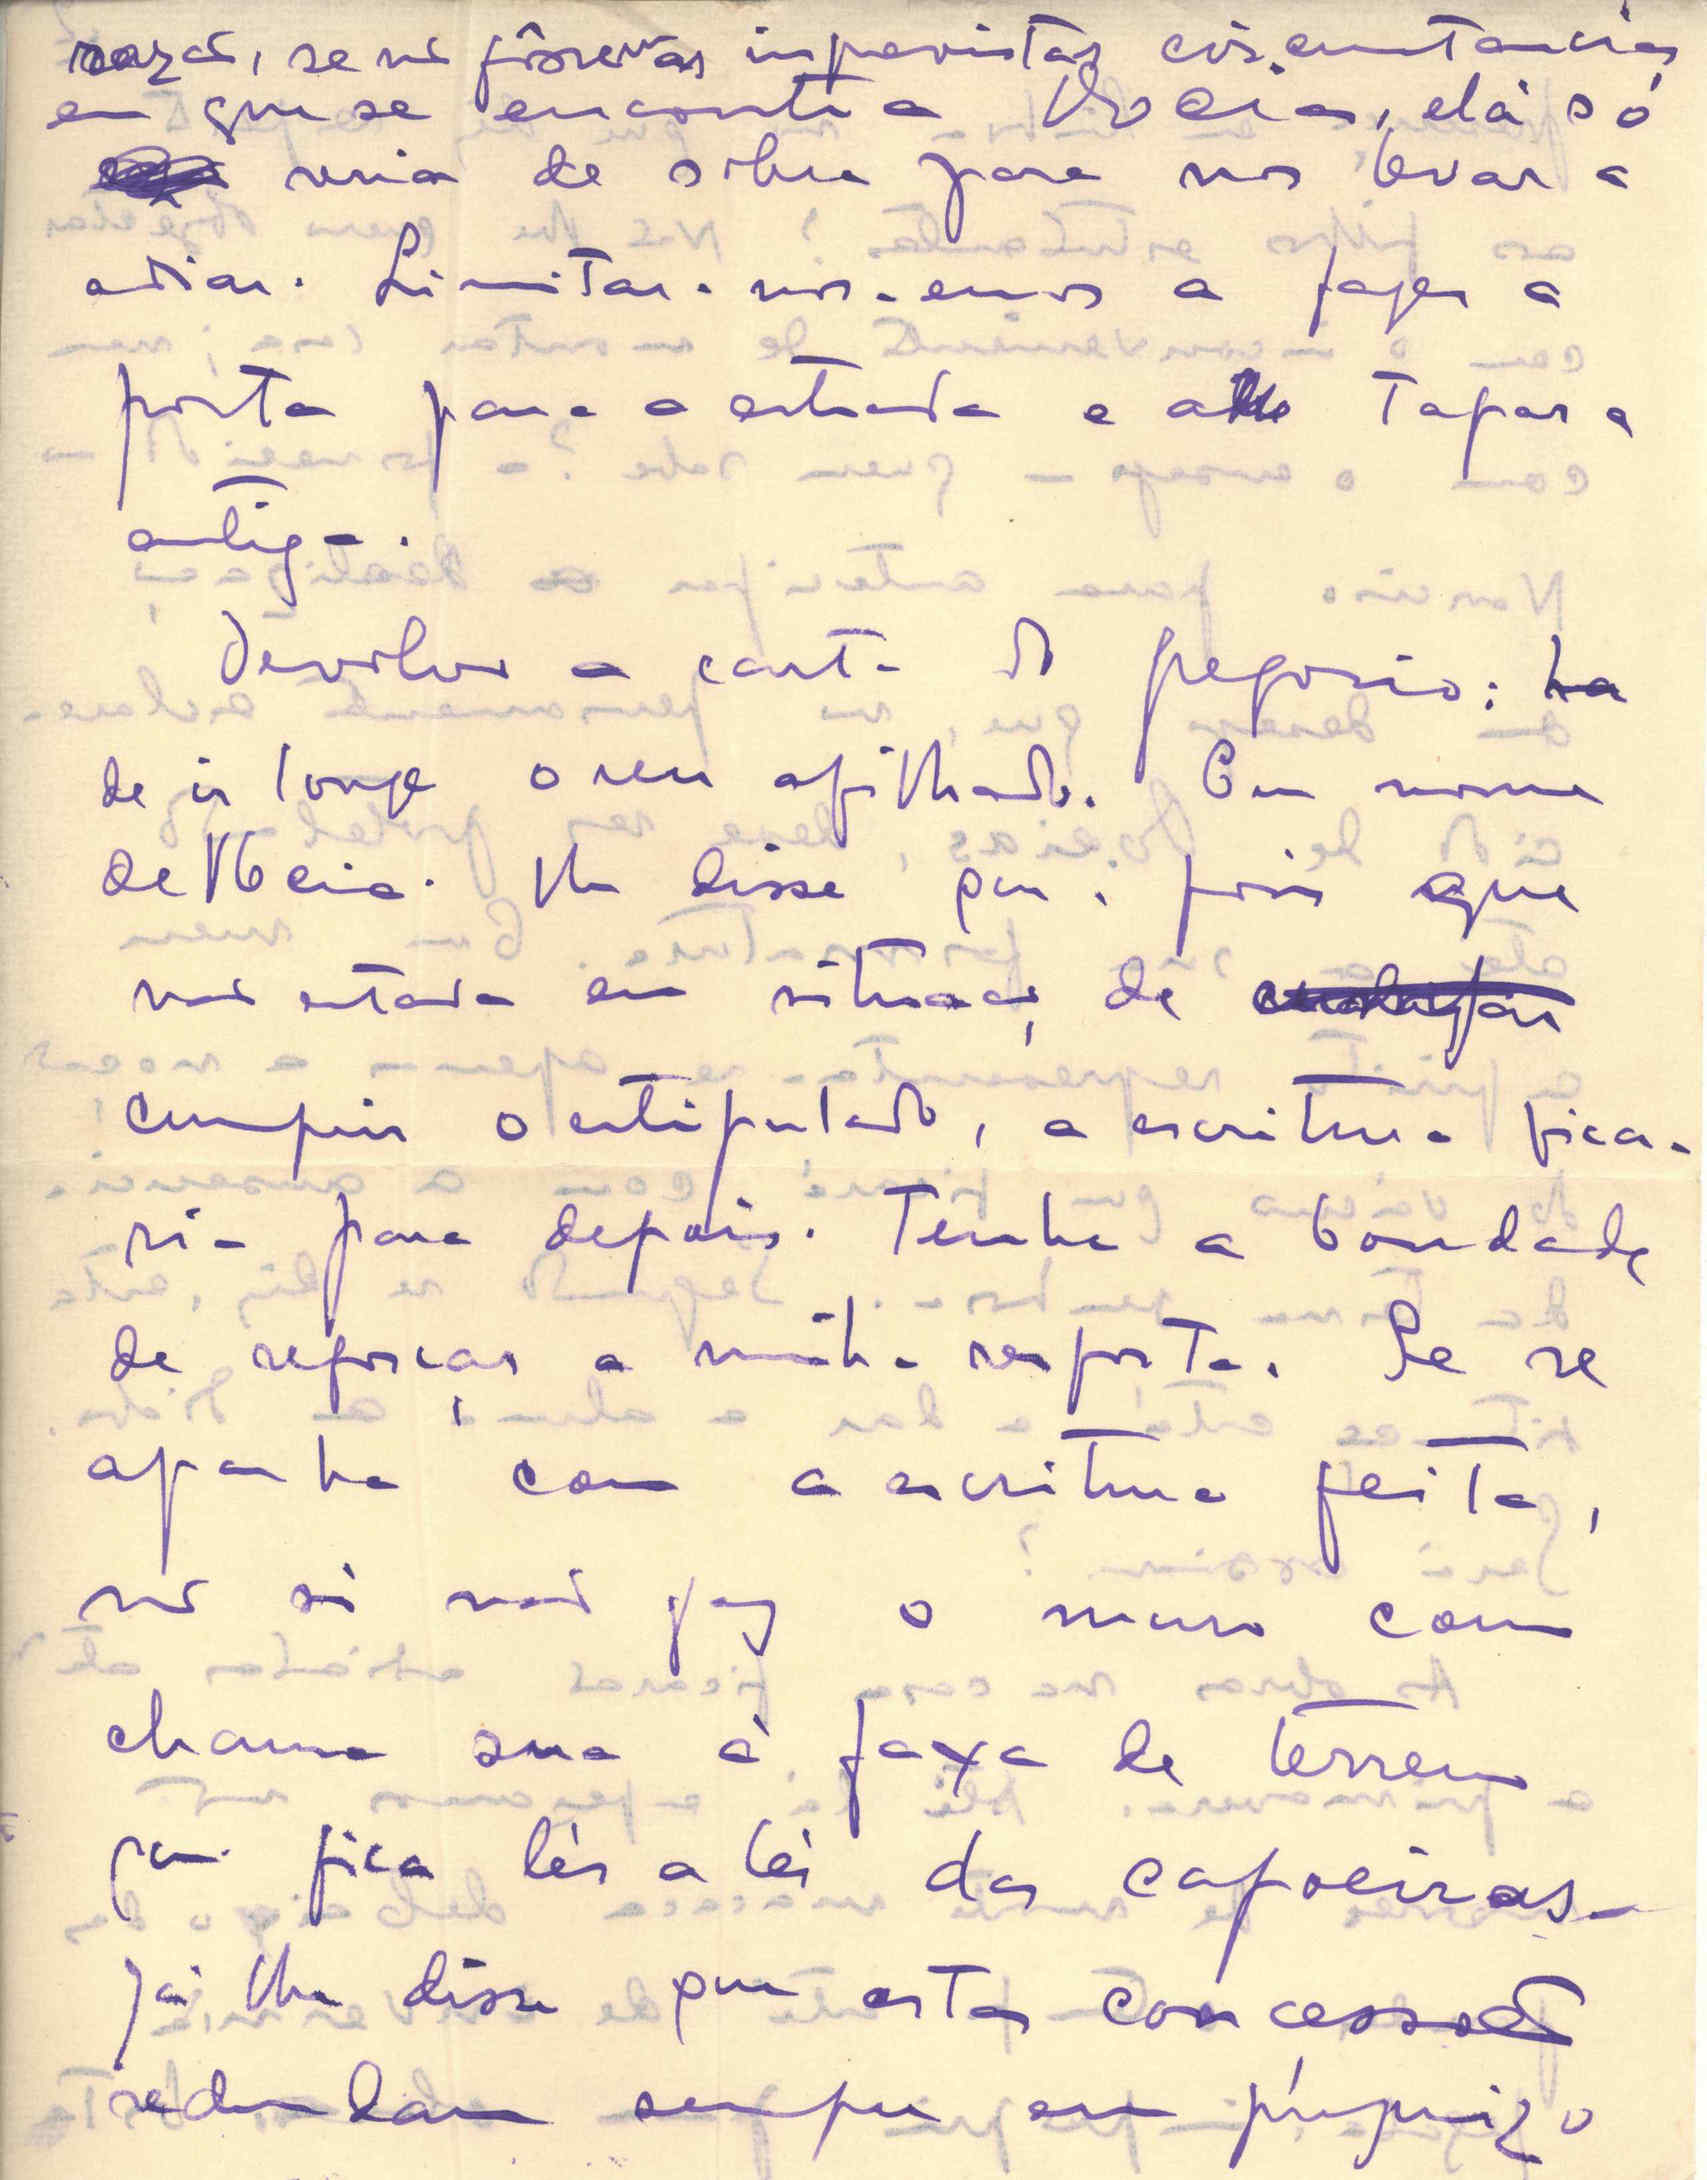 razão, se não fôssem as imprevistas circunstancias
em que se encontra V Ocia, ela só
seria de sobra para nos levar a
adiar. Limitar-nos-emos a fazer a
porta para a estrada e a tapar a
antiga.
Devolvo a carta do Gregorio: ha
de ir longe o seu afilhado. Em nome
de V Ocia. lhe disse que, pois que
não estava em situação de
cumprir o estipulado, a escritura fica-
ria para depois. Tenha a bondade
de reforçar a minha resposta. Se se
apanha com a escritura feita,
não só não faz o muro como
chama sua à faxa de terreno
que fica lés a lés das capoeiras.
Já lhe disse que estas concessões
redundam sempre em prejuizo